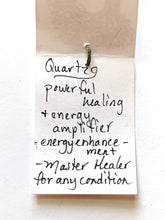 Quartz
powerful
healing
+ energy
amplifier
energy enhance-
ment
- Master Healer
for any condition